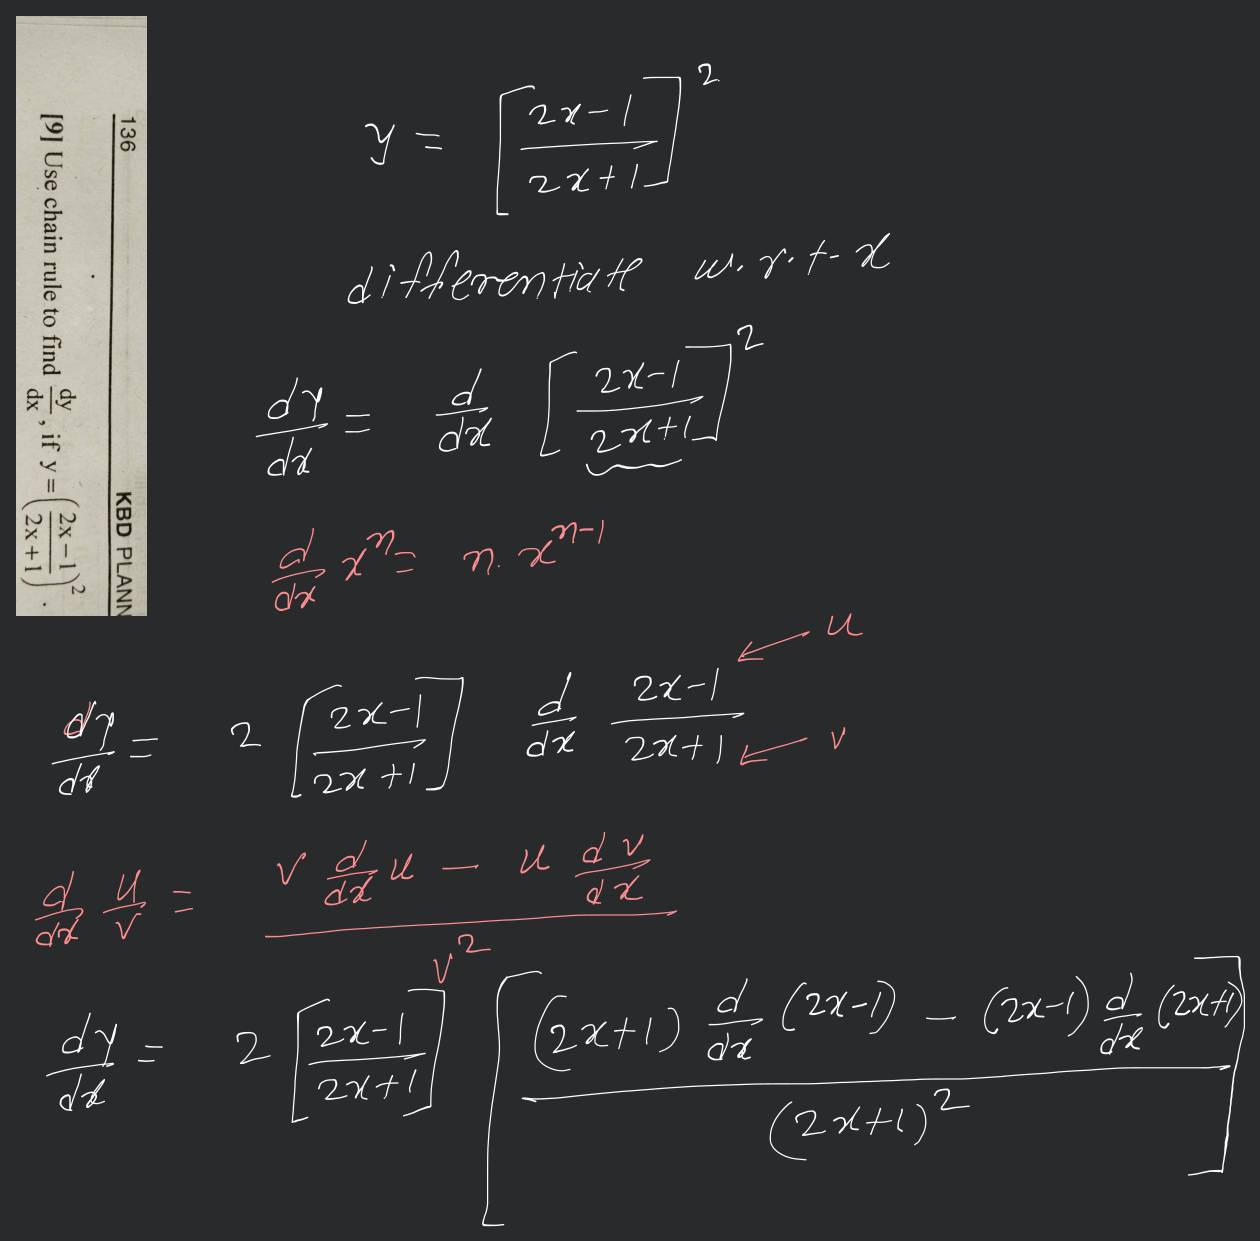 136 KBD PLANN
[9] Use chain rule to find dy/dx, if y = ((2x-1)/(2x+1))^2.
y = [(2x-1)/(2x+1)]^2
differentiate w.r.t. x
dy/dx = d/dx [(2x-1)/(2x+1)]^2
d/dx x^n = n. x^(n-1)
u
dy/dx = 2 [(2x-1)/(2x+1)] d/dx (2x-1)/(2x+1)
v
d/dx u/v = (v d/dx u - u dv/dx)/v^2
dy/dx = 2 [(2x-1)/(2x+1)] [((2x+1) d/dx (2x-1) - (2x-1) d/dx (2x+1))/(2x+1)^2]